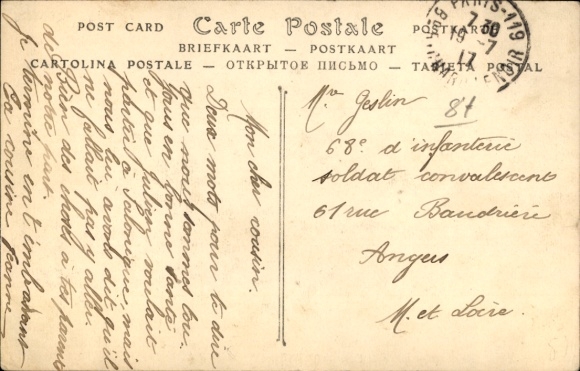 POST CARD Carte Postale POSTKARTE
BRIEFKAART — POSTKAART
CARTOLINA POSTALE — ОТКРЫТОЕ ПИСЬМО — TARJETA POSTAL
PARIS-119
7 30
19 -7
17
Mon cher cousin.
Deux mots pour te dire
que nous sommes tou-
jours en bonne santé
et que Julien voulait
partir à Salonique, mais
nous lui avons dit qu'il
ne fallait pas y aller.
Bien des choses à tes parents
de notre part.
Je termine en t'embrassant
Ta cousine Jeanne
Mr Geslin 81
68e d'infanterie
soldat convalescent
61 rue Baudrière
Angers
M. et Loire.